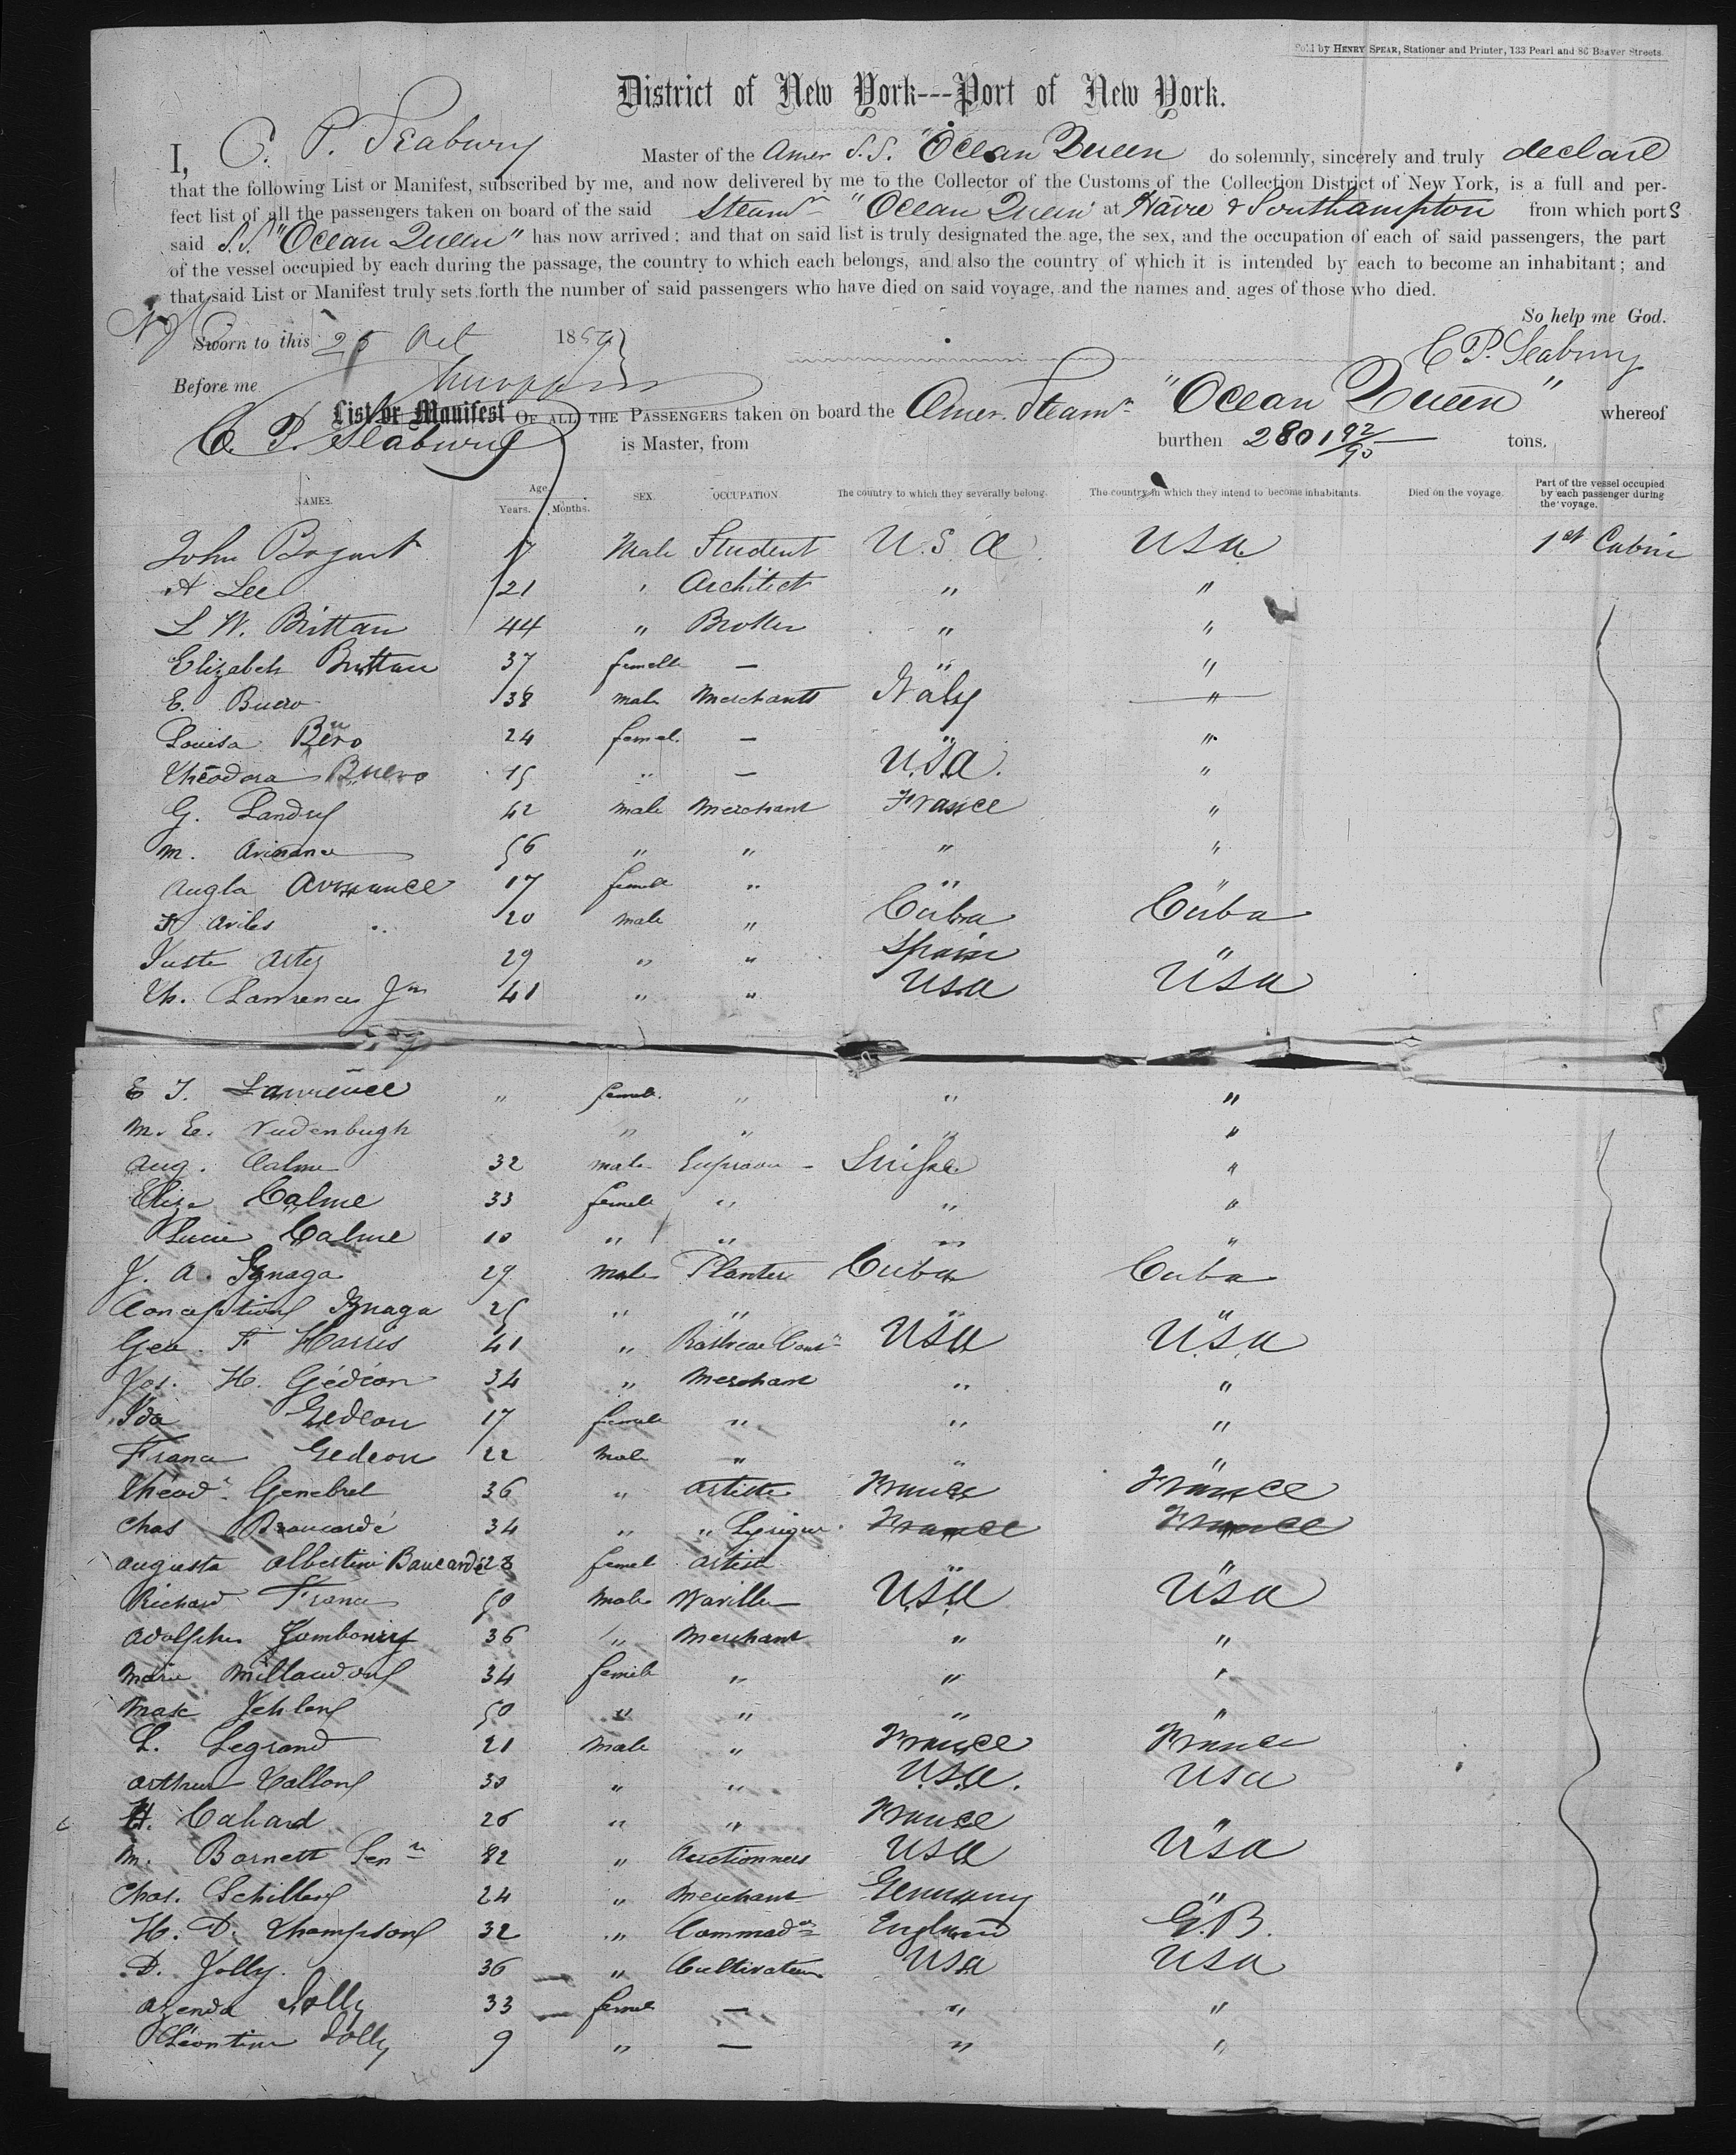 Sold by HENRY SPEAR, Stationer and Printer, 133 Pearl and 86 Beaver Streets.
District of New York---Port of New York.
I, C. P. Seabury Master of the Amer S.S. "Ocean Queen do solemnly, sincerely and truly declare
that the following List or Manifest, subscribed by me, and now delivered by me to the Collector of the Customs of the Collection District of New York, is a full and per-
fect list of all the passengers taken on board of the said Steamr "Ocean Queen" at Havre & Southampton from which ports
said S.S. "Ocean Queen" has now arrived; and that on said list is truly designated the age, the sex, and the occupation of each of said passengers, the part
of the vessel occupied by each during the passage, the country to which each belongs, and also the country of which it is intended by each to become an inhabitant; and
that said List or Manifest truly sets forth the number of said passengers who have died on said voyage, and the names and ages of those who died.
So help me God.
Sworn to this 25 Oct 1859 C P. Seabury
Before me
List or Manifest OF ALL THE PASSENGERS taken on board the Amer. Steamr "Ocean Queen" whereof
C. P. Seabury is Master, from burthen 2801 92/90 tons.
NAMES. Age Years. Months. SEX. OCCUPATION The country to which they severally belong. The country in which they intend to become inhabitants. Died on the voyage. Part of the vessel occupied by each passenger during the voyage.
John Bogart 17 Male Student U.S.A. USA 1st Cabin
A Lee 21 " Architect " "
L W. Brittan 44 " Broker " "
Elizabeh Brittan 37 femelle — " "
E. Buero 38 male Merchants Italy "
Louisa Buero 24 femel. — " "
Théodora Buero 15 " — U.S.A. "
G. Landry 42 male Merchant France "
M. 56 " " " "
Angla 17 female " " "
F Aviles 20 male " Cuba Cuba
Juste Artez 29 " " Spain "
Th. Lawrence Jnr 41 " " USA USA
E T. Lawrence " female " " "
M. E. Rudenbugh " " " "
Aug. Calme 32 male Suisse "
Elise Calme 33 female " " "
Lucie Calme 10 " " " "
J. A. Iznaga 29 male Planter Cuba Cuba
Conception Iznaga 25 " " " "
Geo. F Harris 41 " USA USA
Jos. H. Gédéon 34 " Merchant " "
Ida Gedeon 17 female " " "
Franc Gedeon 22 male " " "
Théod. Genebrel 36 " Artiste France France
Chas Braucardé 34 " " Lyrique. France France
Augusta Albertini Baucardé 28 femel Artist " "
Richard Franc 50 Male USA USA
Adolphe 36 " Merchant " "
Marie Millaudon 34 female " " "
Max Jehlen 50 " " " "
L. Legrand 21 male " France France
Arthur Tallon 30 " " USA. USA
H. Cahard 26 " " France "
M. Barnett Senr 82 " Auctionners USA USA
Chas. Schilling 24 " Merchant Germany "
H. D. Thompson 32 " England G.B.
D. Jolly. 36 " Cultivateur USA USA
Azenda Jolly 33 femel — " "
Léontine Jolly 9 " — " "